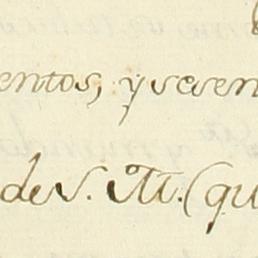 entos, y sesen
de S. M. (qu